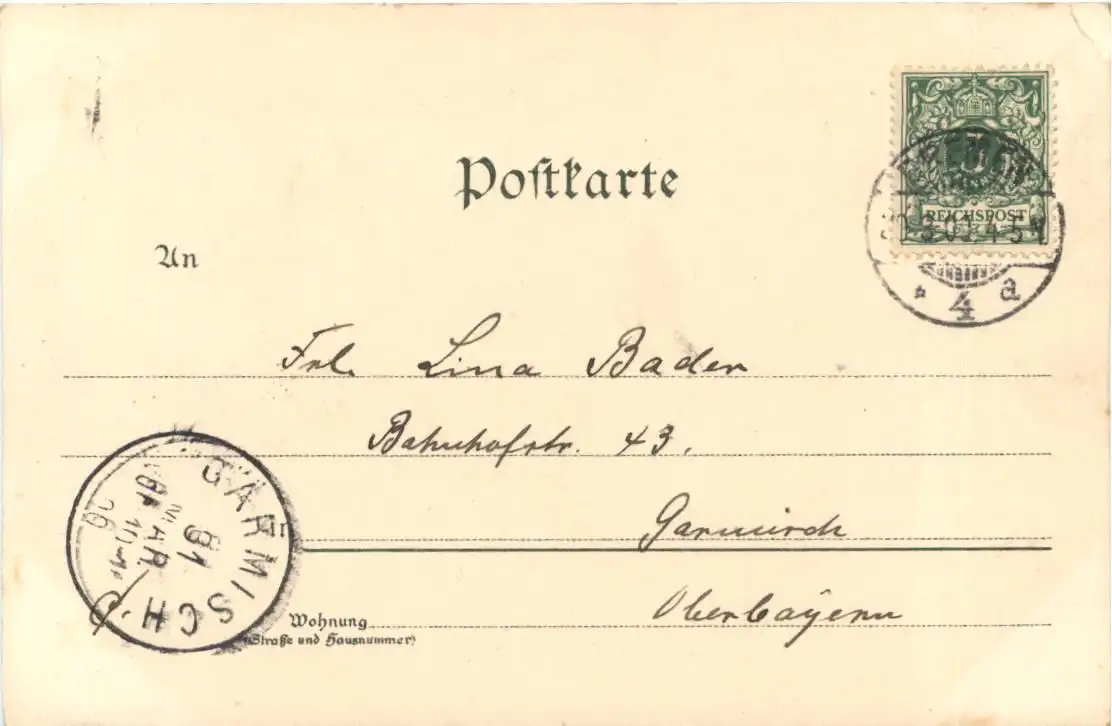 Postkarte
5
REICHSPOST
4 a
An
Frl. Lina Bader
Bahnhofstr. 43.
Garmisch
Oberbayern
in
GARMISCH
MAR.
Wohnung
(Straße und Hausnummer)